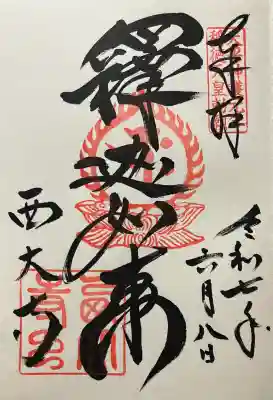 奉拝
令和七年
六月八日
釋迦如来
西大寺